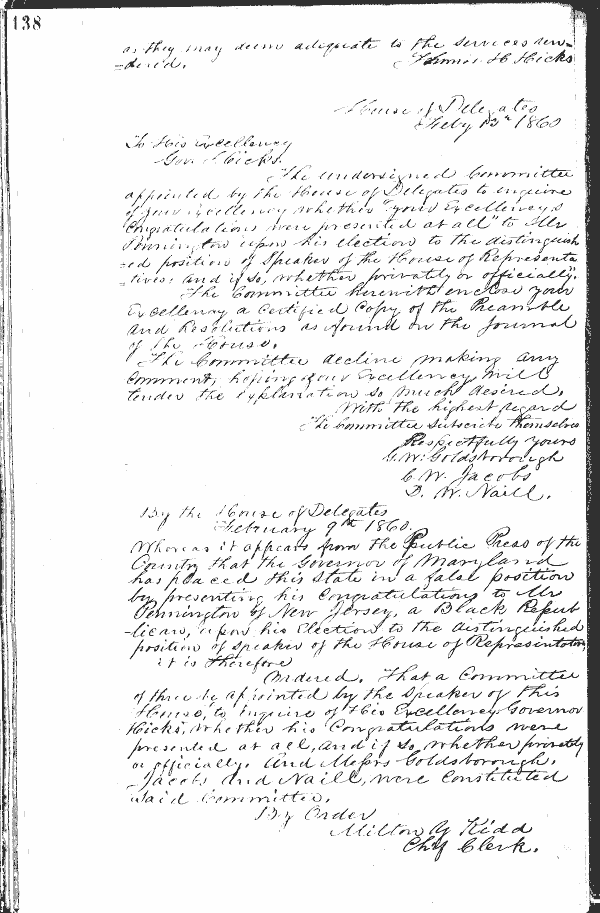 138
as they may deem adequate to the services ren=
=dered. Thomas H Hicks
House of Delegates
Feby 13th 1860
To His Excellency
Gov. Hicks.
The undersigned Committee
appointed by the House of Delegates to enquire
of your Excellency whether "your Excellencys
Congratulations were presented at all" to Mr
Pennington upon his election to the distinguish
=ed position of Speaker of the House of Representa
=tives: and if so, whether privately or officially".
The Committee herewith enclose your
Excellency a certified Copy of the Preamble
and Resolutions as found on the Journal
of the House.
The Committee decline making any
Comment, hoping your Excellency will
tender the explanation so much desired.
With the highest regard
The Committee subscribe themselves
Respectfully yours
G. W. Goldsborough
C. W. Jacobs
D. W. Naill.
By the House of Delegates
February 9th 1860.
Whereas it appears from the Public Press of the
Country that the Governor of Maryland
has placed this State in a false position
by presenting his Congratulations to Mr
Pennington of New Jersey, a Black Repub
=lican, upon his Election to the distinguished
position of speaker of the House of Representatives
it is therefore
Ordered. That a Committee
of three be appointed by the Speaker of this
House, to enquire of His Excellency Governor
Hicks, whether his Congratulations were
presented at all, and if so, whether privately
or officially. And Messrs Goldsborough,
Jacobs and Naill, were Constituted
said Committee.
By Order
Milton Y Kidd
Chf Clerk.